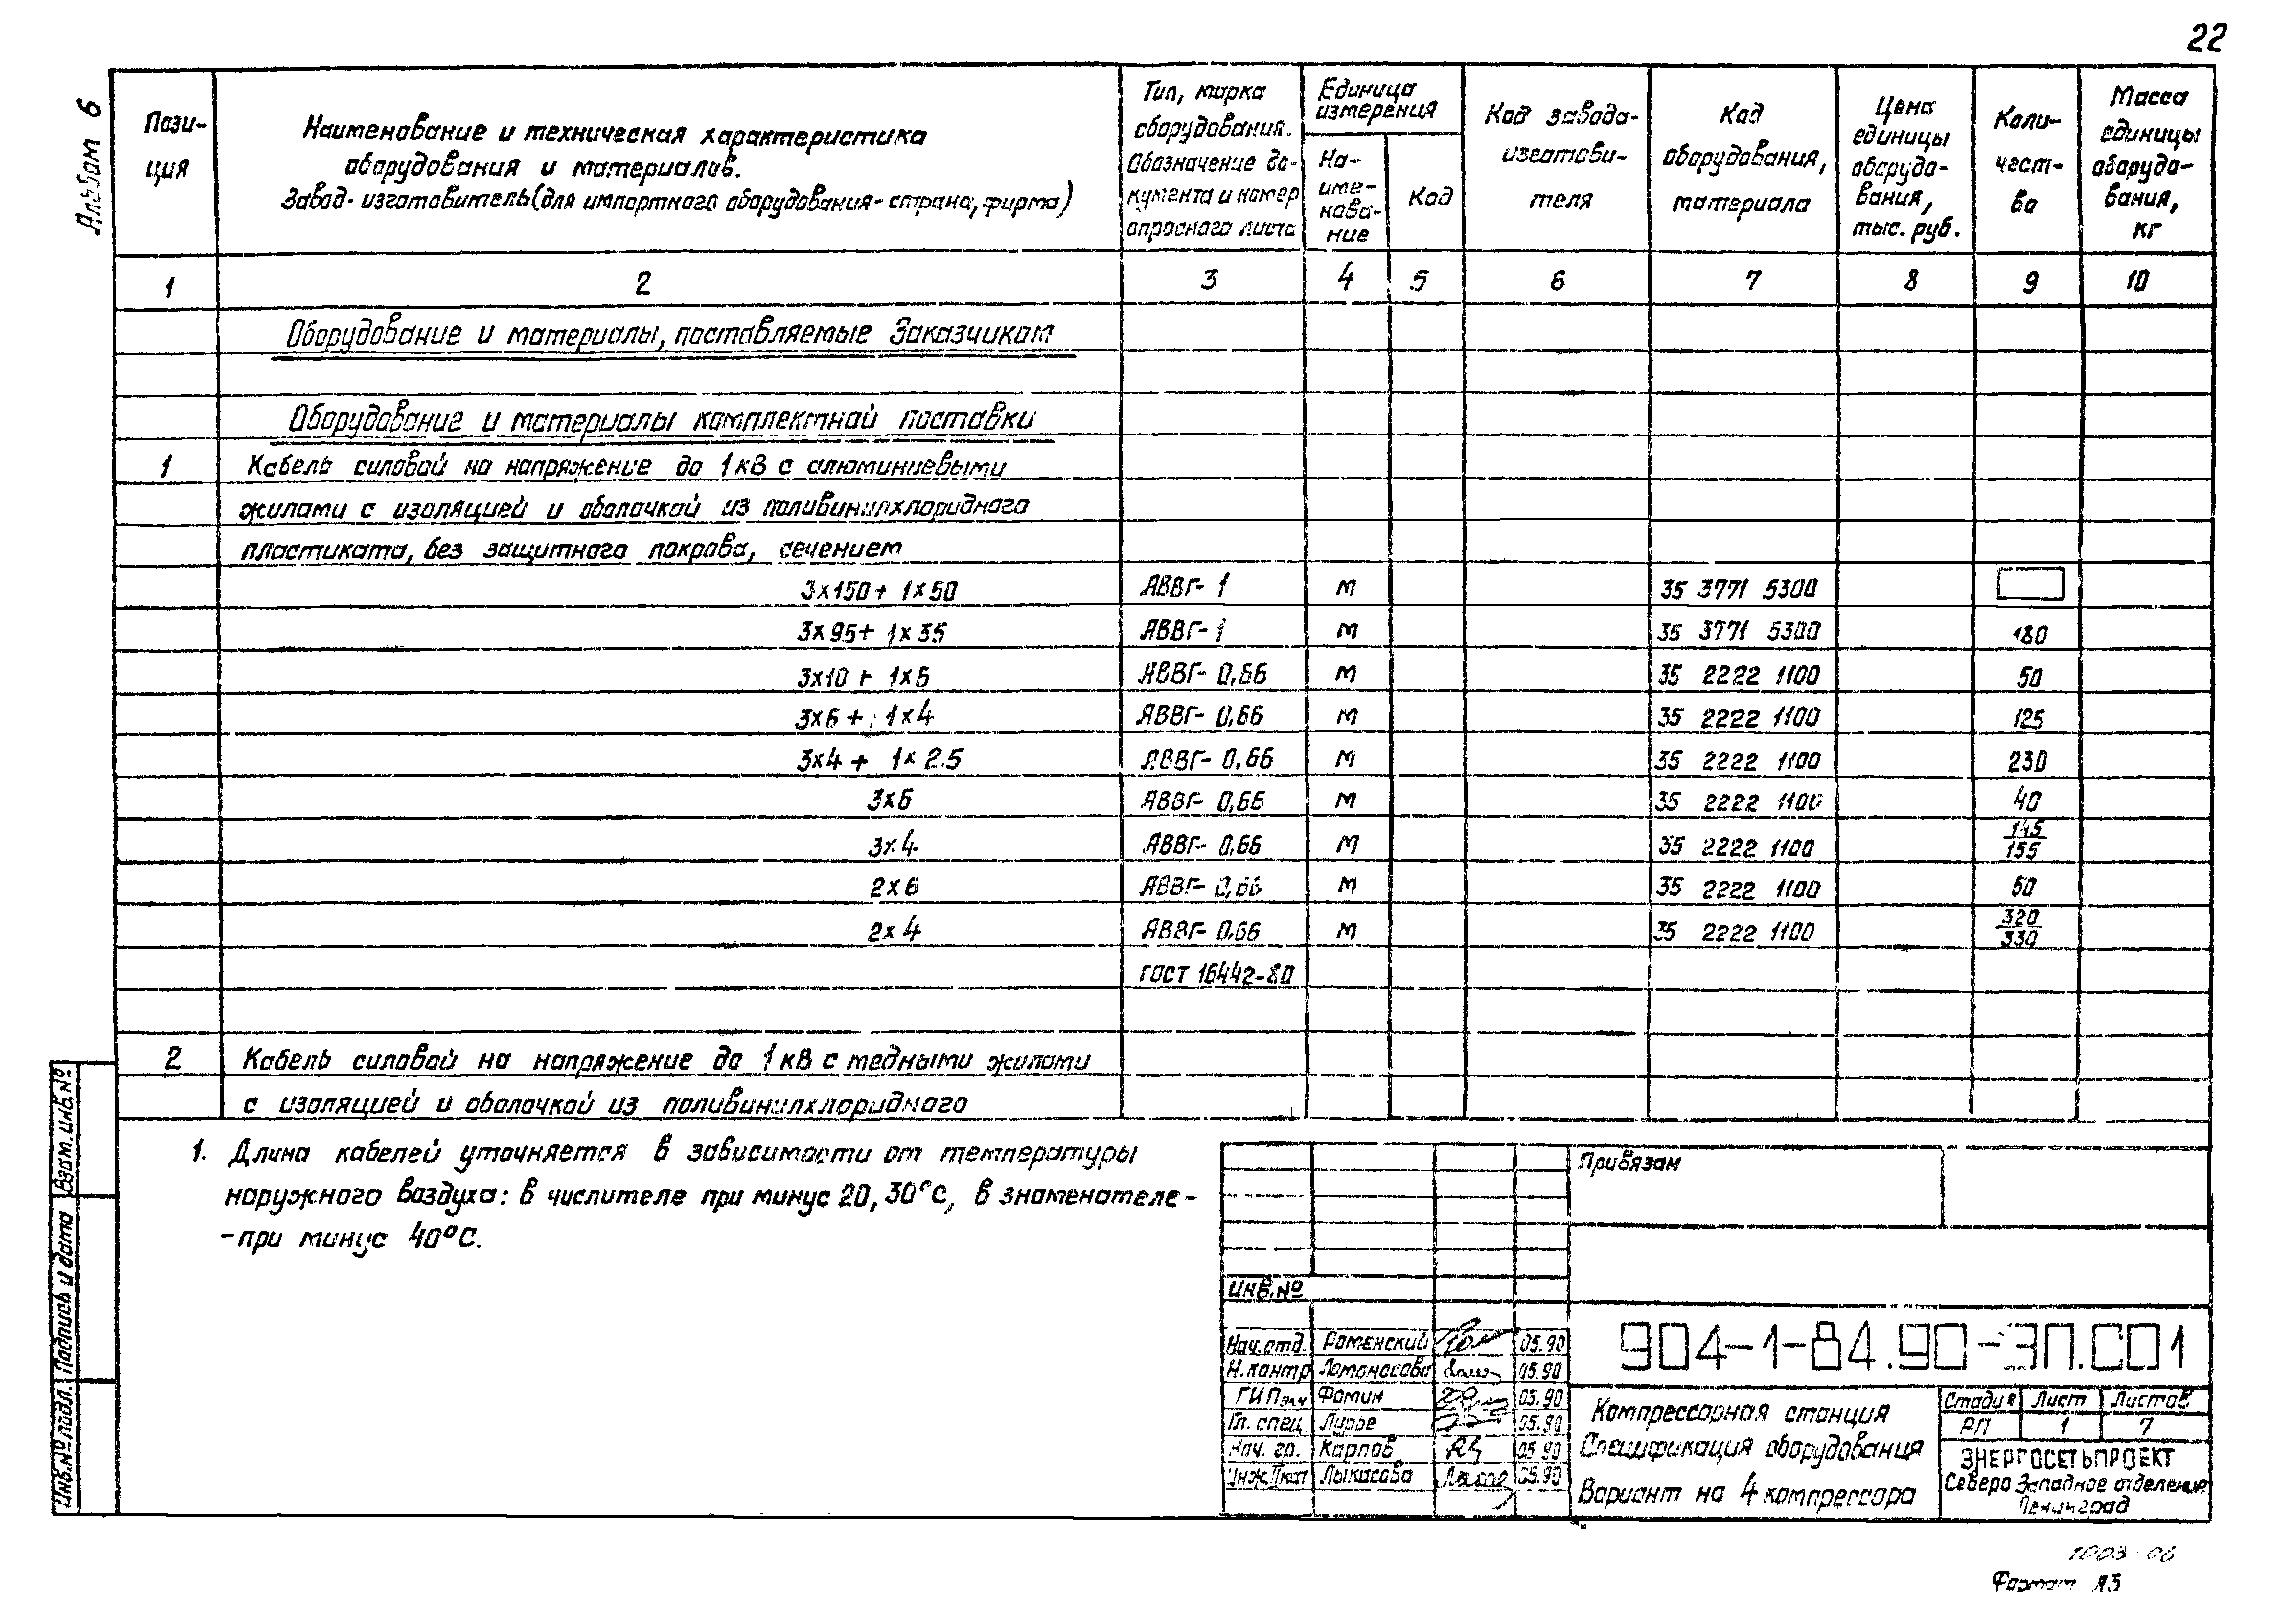 22
Альбом 6
Пози-
ция
Наименование и техническая характеристика
оборудования и материалов.
Завод-изготовитель (для импортного оборудования - страна, фирма)
Тип, марка
оборудования.
Обозначение до-
кумента и номер
опросного листа
Единица
измерения
На-
име-
нова-
ние
Код
Код завода-
изготови-
теля
Код
оборудования,
материала
Цена
единицы
оборудо-
вания,
тыс. руб.
Коли-
чест-
во
Масса
единицы
оборудо-
вания,
кг
1 2 3 4 5 6 7 8 9 10
Оборудование и материалы, поставляемые Заказчиком
Оборудование и материалы комплектной поставки
1 Кабель силовой на напряжение до 1 кВ с алюминиевыми
жилами с изоляцией и оболочкой из поливинилхлоридного
пластиката, без защитного покрова, сечением
3х150 + 1х50 АВВГ-1 м 35 3771 5300
3х95 + 1х35 АВВГ-1 м 35 3771 5300 180
3х10 + 1х6 АВВГ-0,66 м 35 2222 1100 50
3х6 + 1х4 АВВГ-0,66 м 35 2222 1100 125
3х4 + 1х2.5 АВВГ-0,66 м 35 2222 1100 230
3х6 АВВГ-0,66 м 35 2222 1100 40
3х4 АВВГ-0,66 м 35 2222 1100 145/155
2х6 АВВГ-0,66 м 35 2222 1100 50
2х4 АВВГ-0,66 м 35 2222 1100 320/330
ГОСТ 16442-80
2 Кабель силовой на напряжение до 1 кВ с медными жилами
с изоляцией и оболочкой из поливинилхлоридного
1. Длина кабелей уточняется в зависимости от температуры
наружного воздуха: в числителе при минус 20, 30°С, в знаменателе -
- при минус 40°С.
Взам. инв. №
Подпись и дата
Инв. № подл.
Привязан
Инв. №
Нач. отд. Роменский 05.90
Н. контр Ломоносова 05.90
ГИП эл.ч Фомин 05.90
Гл. спец. Лурье 05.90
Нач. гр. Карпов 05.90
Инж. II кат Лыкасова 05.90
904-1-84.90-ЭП.СО1
Компрессорная станция
Спецификация оборудования
Вариант на 4 компрессора
Стадия Лист Листов
РП 1 7
ЭНЕРГОСЕТЬПРОЕКТ
Северо Западное отделение
Ленинград
1003-06
Формат А3